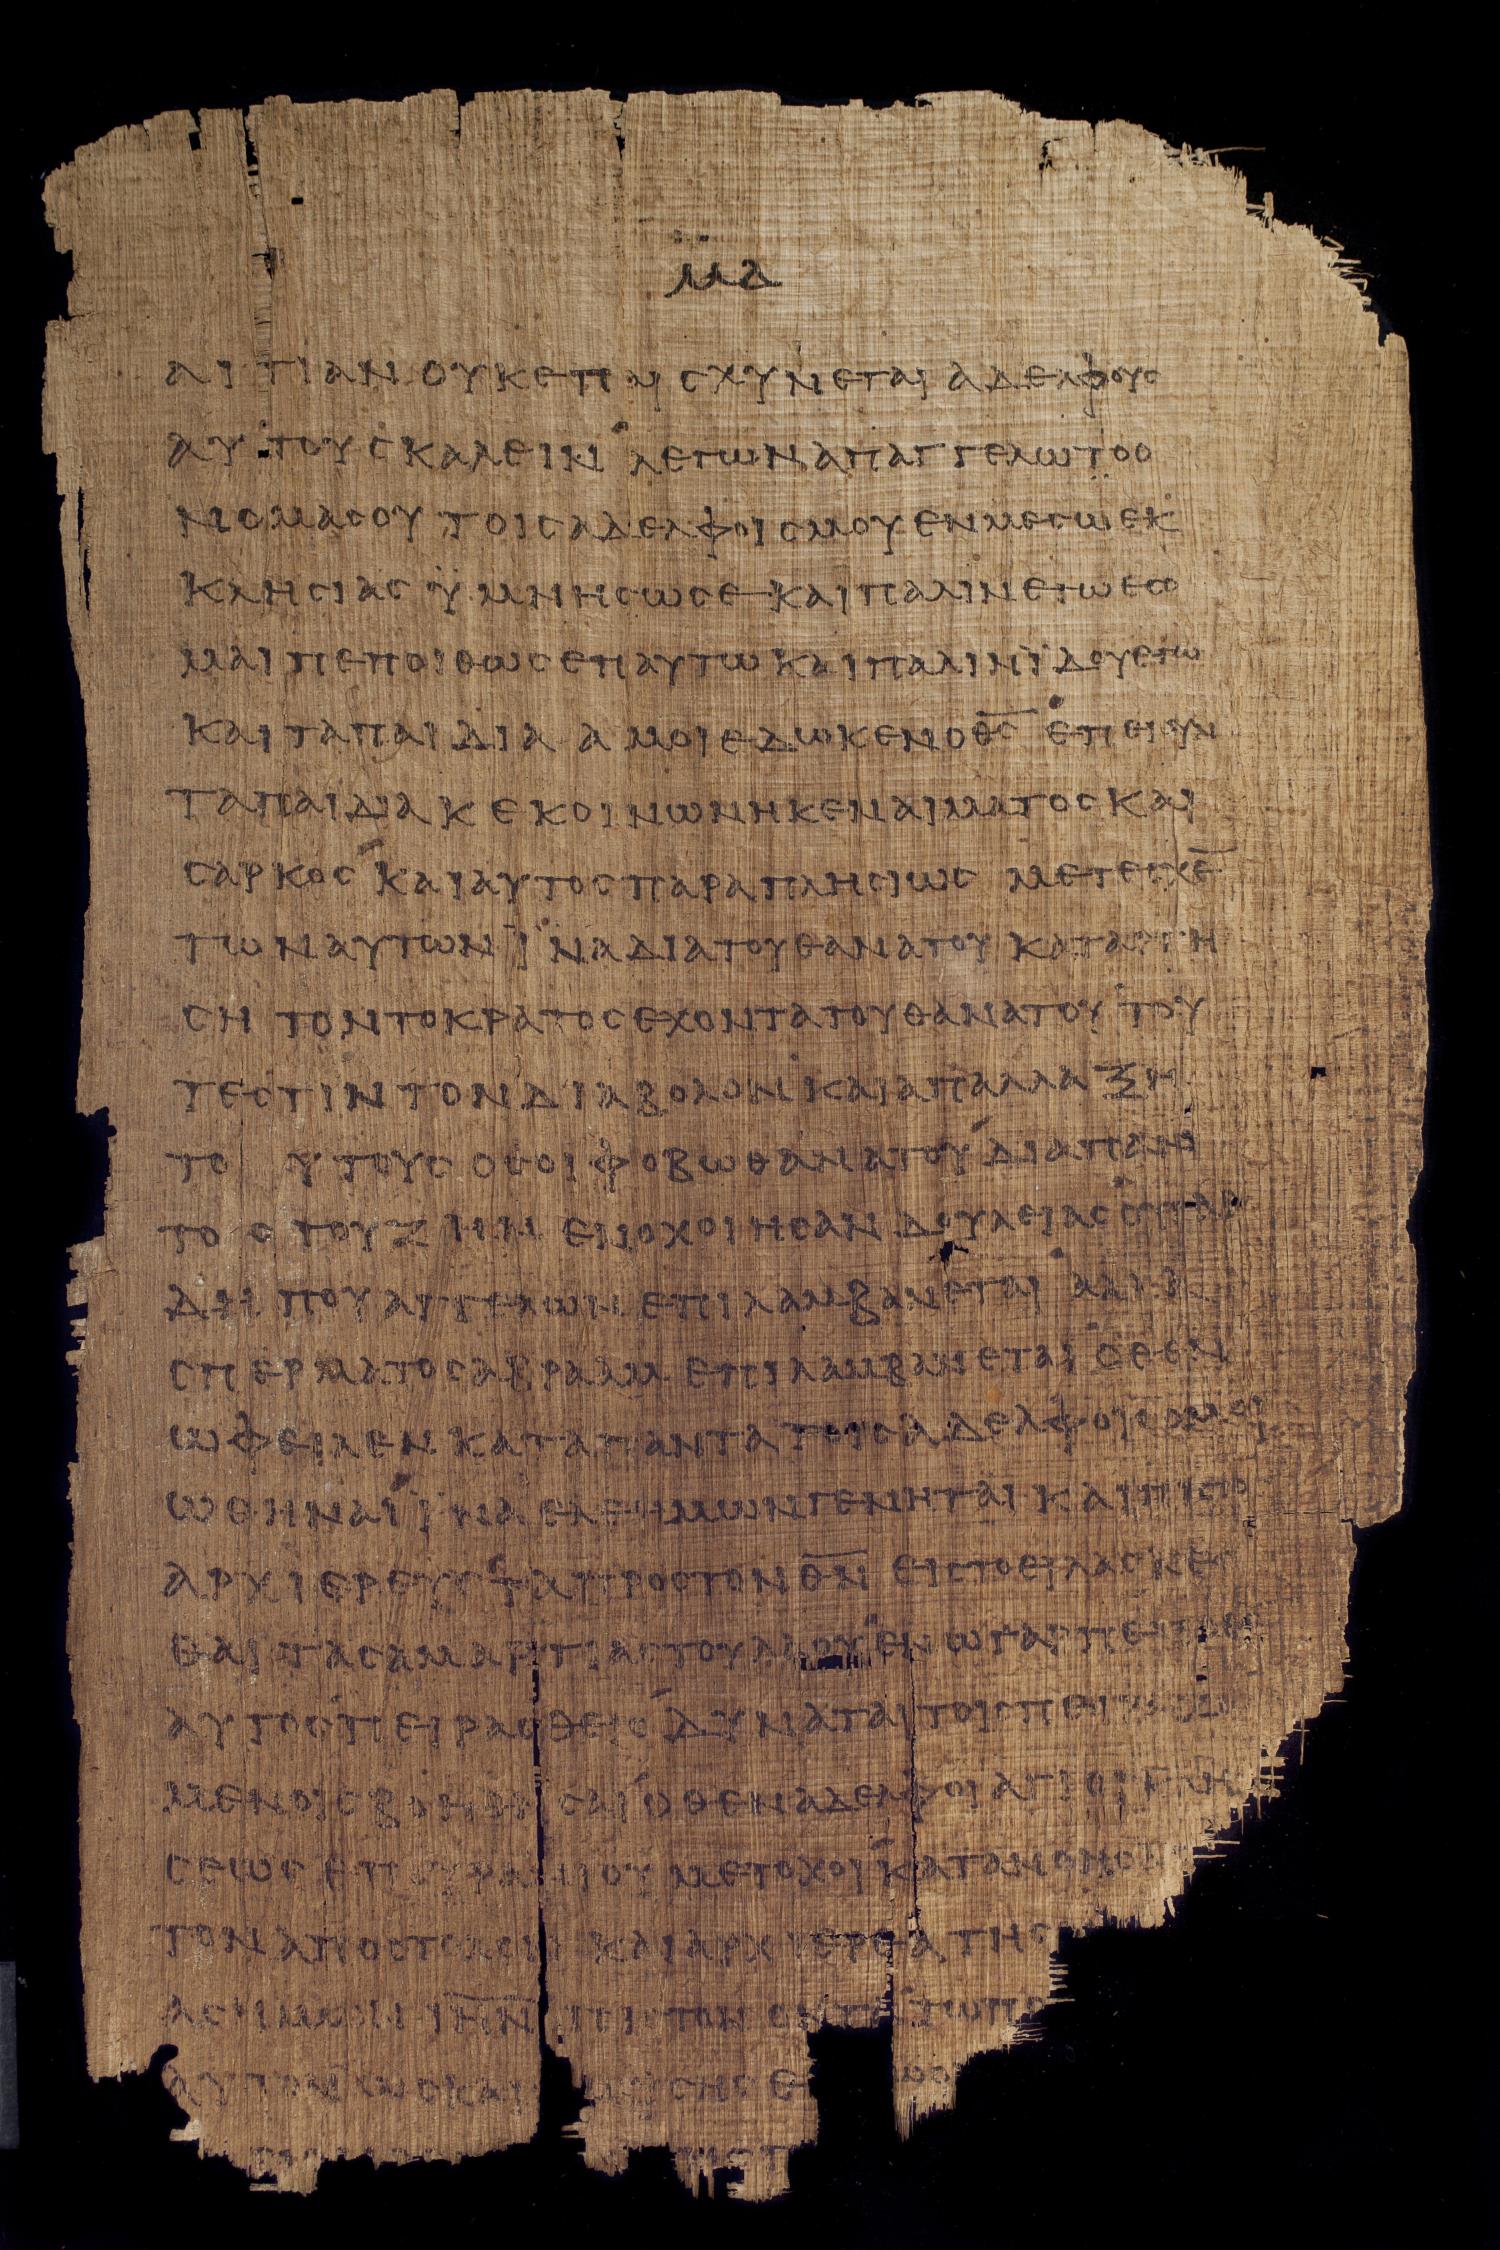 μα
αιτιανουκεπησχυνεταιαδελφους
αυτουςκαλεινλεγωναπαγγελωτοο
νομασουτοιςαδελφοιςμουενμεσωεκ
κλησιαςϋμνησωσεκαιπαλινεγωεσο
μαιπεποιθωςεπαυτωκαιπαλινϊδουεγω
καιταπαιδιααμοιεδωκενοθ̅ς̅επειουν
ταπαιδιακεκοινωνηκεναιματοςκαι
σαρκοςκαιαυτοςπαραπλησιωςμετεσχε̅
τωναυτωνϊναδιατουθανατουκαταργη
σητοντοκρατοςεχοντατουθανατουτου
τεστιντονδιαβολονκαιαπαλλαξη
τουτουςοσοιφοβωθανατουδιαπαν
τοςτουζηνενοχοιησανδουλειαςουγαρ
δηπουαγγελωνεπιλαμβανεταιαλλα
σπερματοςαβρααμεπιλαμβανεταιοθεν
ωφειλενκαταπαντατοιςαδελφοιςομοι
ωθηναιϊναελεημωνγενηταικαιπιστο
αρχιερευςταπροςτονθ̅ν̅ειςτοειλασκεσ
θαιταςαμαρτιαςτουλαουενωγαρπεπον
αυτοςπειρασθειςδυναταιτοιςπειραζο
μενοιςβοηθησαιοθεναδελφοιαγιοικλη
σεωςεπουρανιουμετοχοικατανοησα
τοναποστολονκαιαρχιερεατης
ι̅η̅ν̅πιστονοντατωπ
αυτονωςκαι